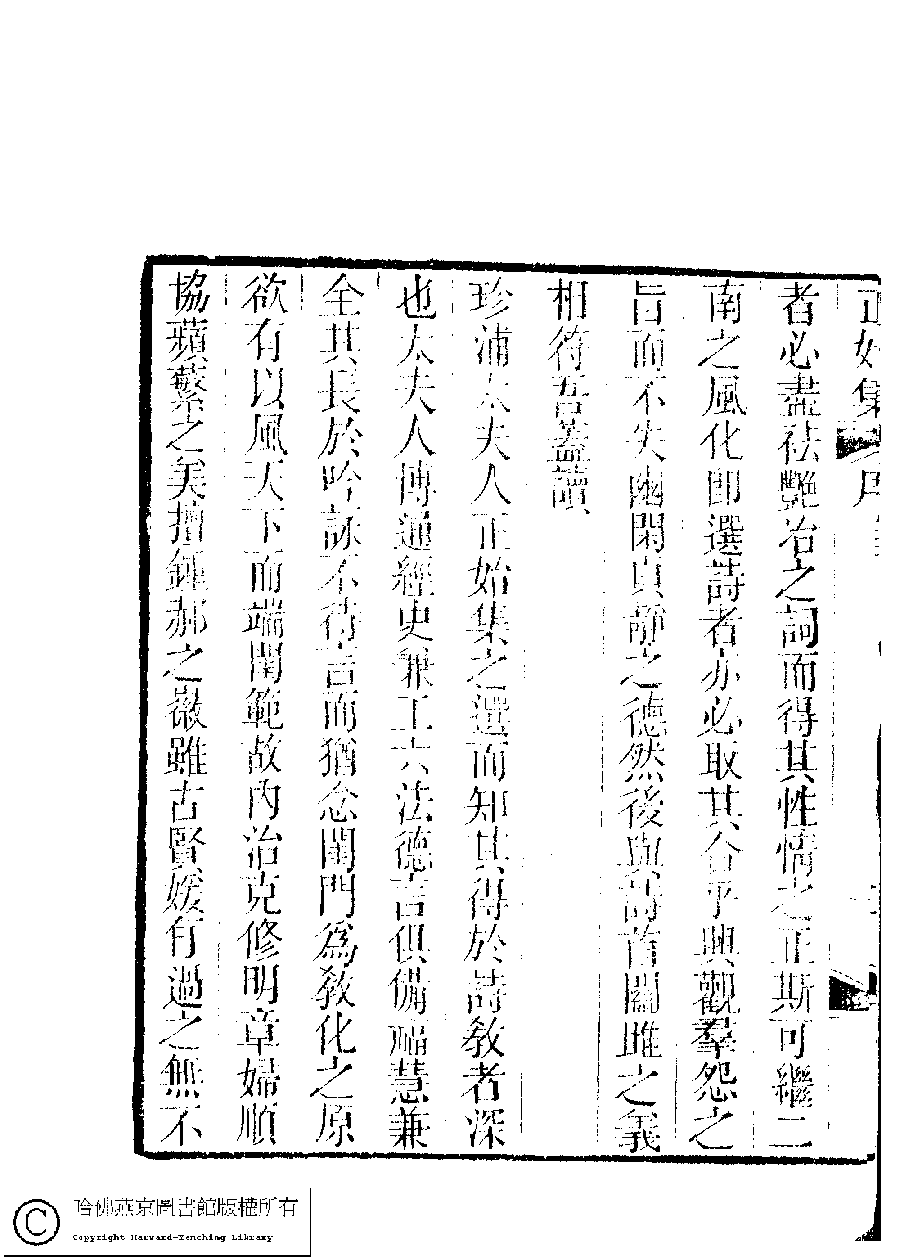 正始集
者必盡袪艷冶之詞而得其性情之正斯可繼二
南之風化卽選詩者亦必取其合乎興觀羣怨之
旨而不失幽閑貞靜之德然後與詩首關雎之義
相符吾蓋讀
珍浦太夫人正始集之選而知其得於詩敎者深
也太夫人博通經史兼工六法德言俱備福慧兼
全其長於吟詠不待言而猶念閨門爲敎化之原
欲有以風天下而端閫範故內治克修明章婦順
協蘋蘩之美擅鍾郝之徽雖古賢媛何過之無不
哈佛燕京圖書館版權所有
Copyright Harvard-Yenching Library